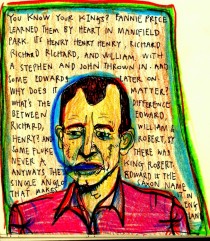 YOU KNOW YOUR KINGS? FANNIE PRICE
LEARNED THEM BY HEART IN MANSFIELD
PARK. IT'S HENRY HENRY HENRY, RICHARD
RICHARD RICHARD, AND WILLIAM, WITH
A STEPHEN AND JOHN THROWN IN. AND
SOME EDWARDS LATER ON.
WHY DOES IT MATTER?
WHAT'S THE DIFFERENCE
BETWEEN EDWARD,
RICHARD, WILLIAM &
HENRY? AND ROBERT, BY
SOME FLUKE THERE WAS
NEVER A KING ROBERT.
ANYWAYS THE EDWARD IS THE
SINGLE ANGLO SAXON NAME
THAT MAKES IT IN
ENG